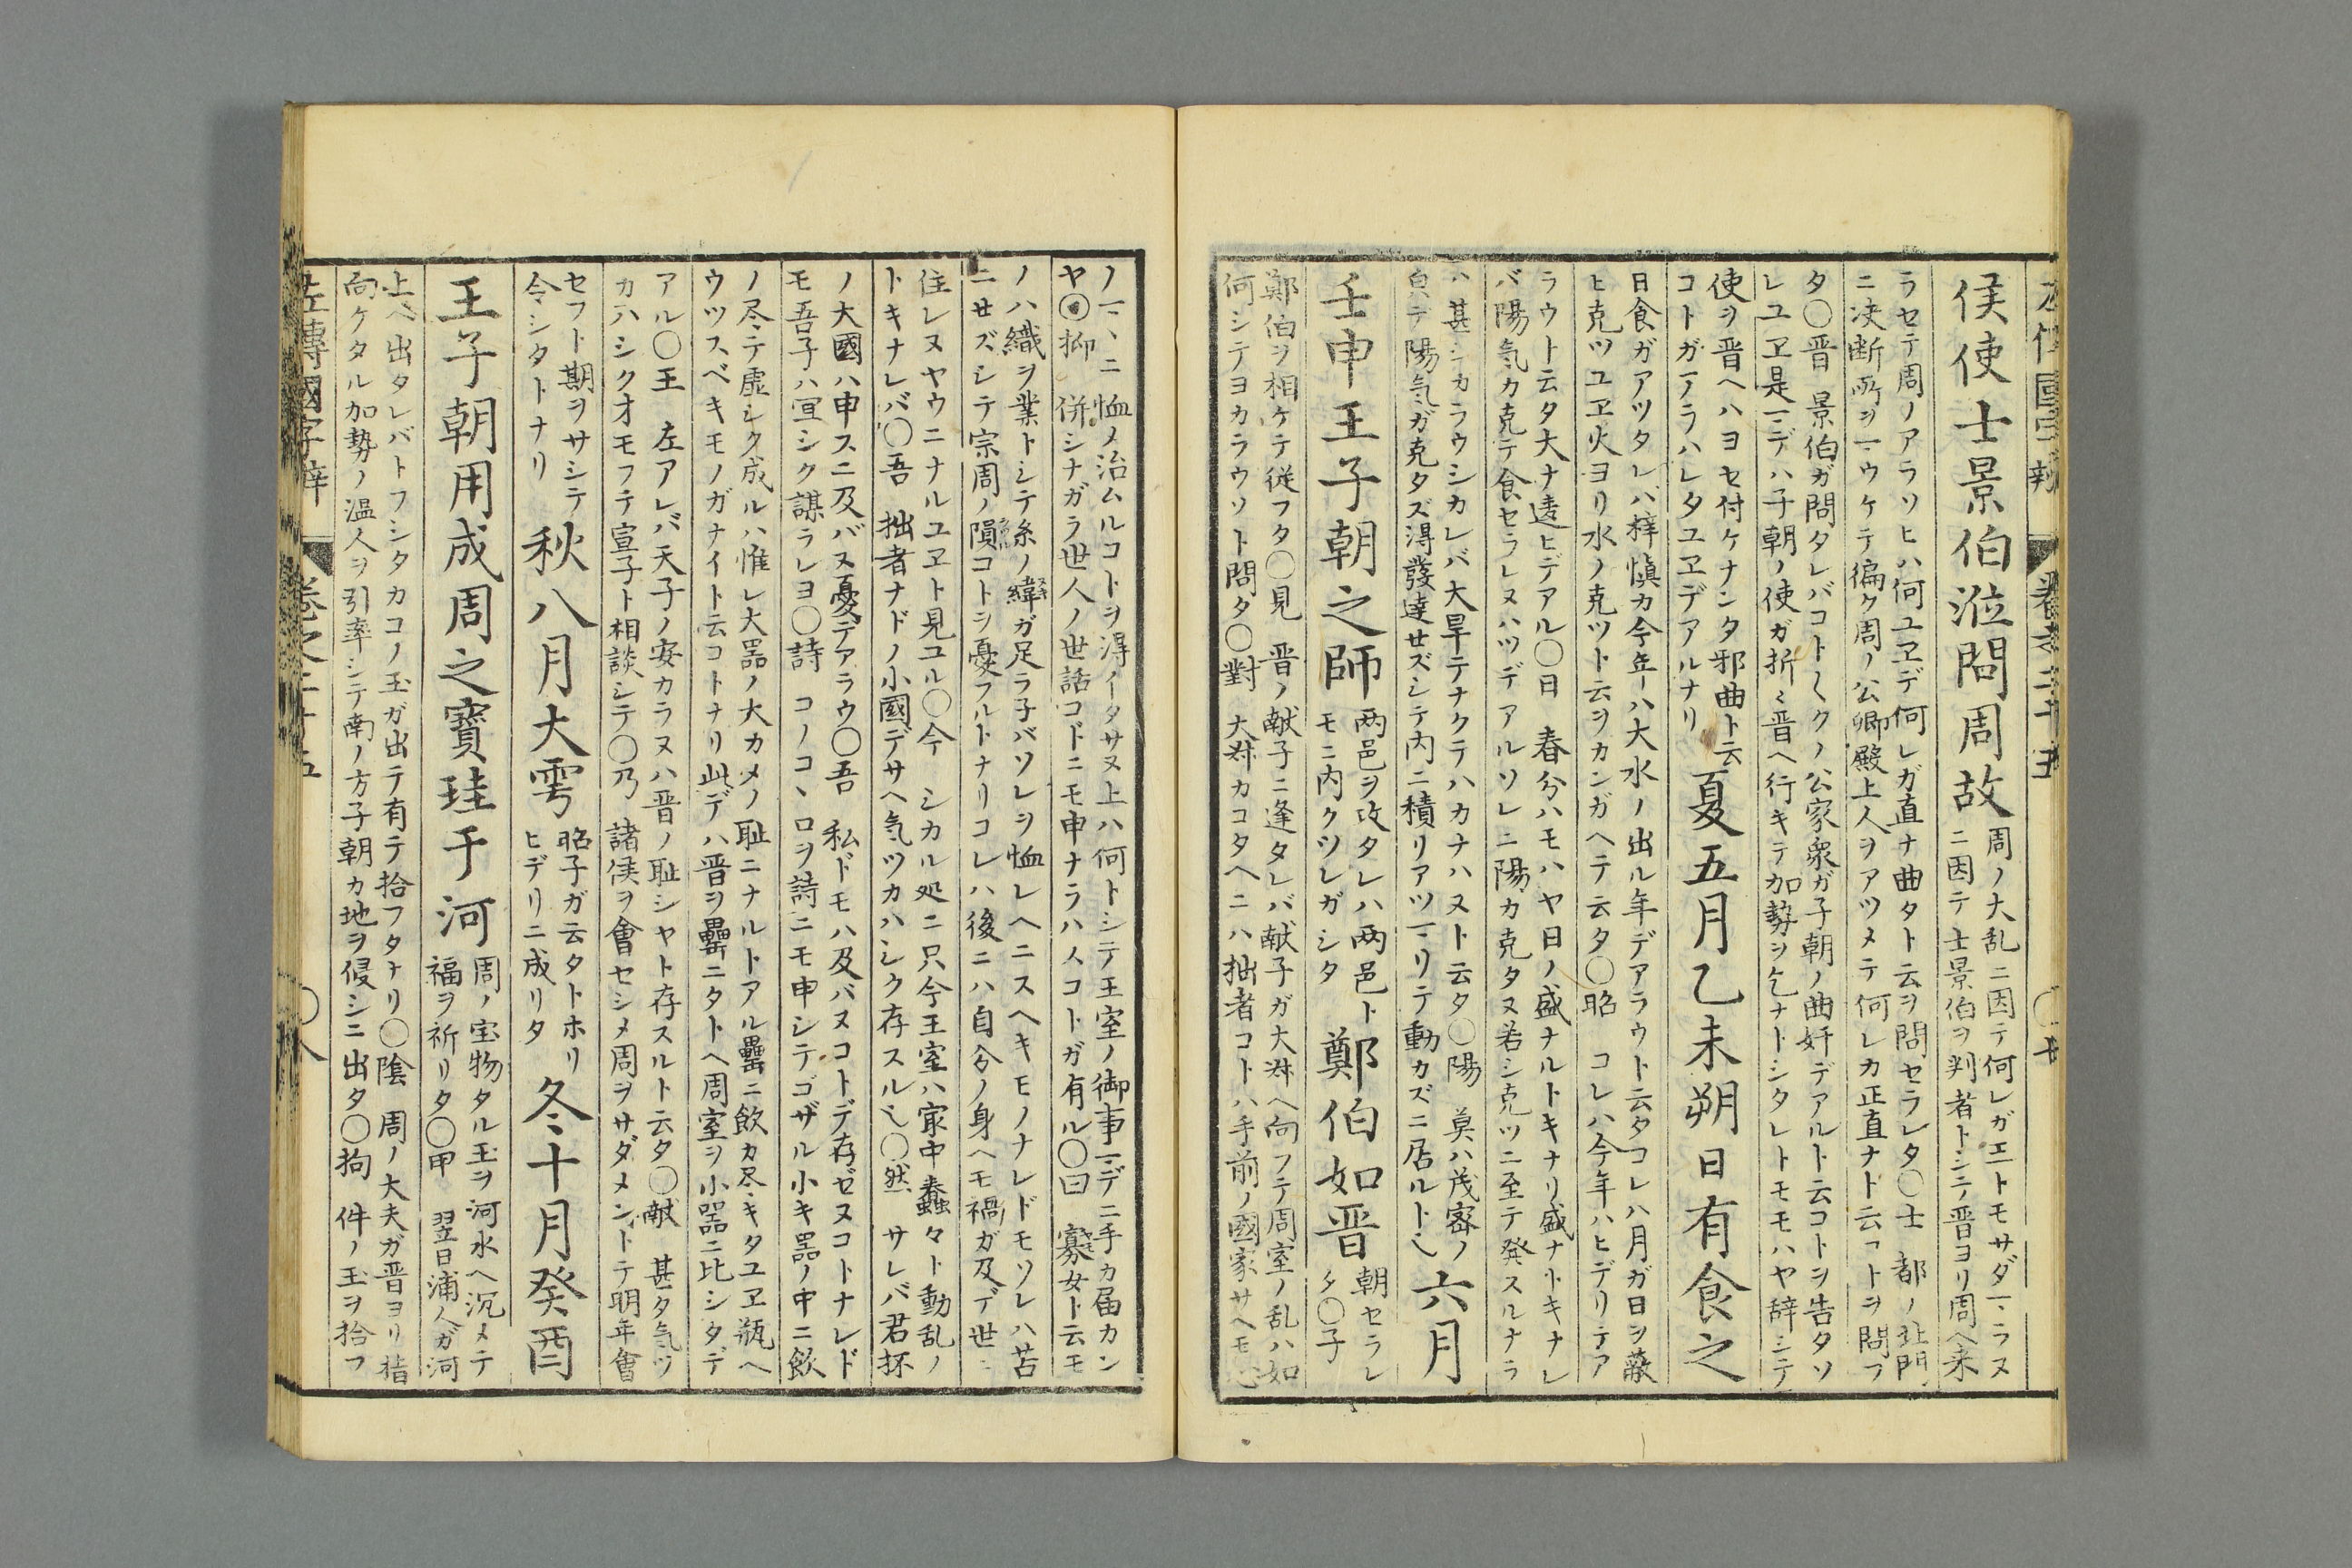 侯使士景伯涖問周故
周ノ大乱ニ因テ何レガ正トモサダマラヌ
ニ因テ士景伯ヲ判者トシテ晋ヨリ周ヘ来
ラセテ周ノアラソヒハ何ユヱデ何レガ直ナ曲タト云ヲ問セラレタ〇士 都ノ北門
ニ决断所ヲマウケテ徧ク周ノ公卿殿上人ヲアツメテ何レカ正直ナト云コトヲ問フ
タ〇晋 景伯ガ問タレバコト〱クノ公家衆ガ子朝ノ曲奸デアルト云コトヲ告タソ
レユヱ是マデハ子朝ノ使ガ折々晋ヘ行キテ加勢ヲ乞ナトシタレトモモハヤ辞シテ
使ヲ晋ヘハヨセ付ケナンタ邪曲ト云
コトガアラハレタユヱデアルナリ
夏五月乙未朔日有食之
日食ガアツタレバ梓慎カ今年ハ大水ノ出ル年デアラウト云タコレハ月ガ日ヲ蔽
ヒ克ツユヱ火ヨリ水ノ克ツト云ヲカンガヘテ云タ〇昭 コレハ今年ハヒデリテア
ラウト云タ大ナ逺ヒデアル〇日 春分ハモハヤ日ノ盛ナルトキナリ盛ナトキナレ
バ陽気カ克テ食セラレヌハツデアルソレニ陽カ克タヌ若シ克ツニ至テ発スルナラ
ハ甚シカラウシカレバ大旱テナクテハカナハヌト云タ〇陽 莫ハ茂密ノ
㒵デ陽気ガ克タズ淂發達セズシテ内ニ積リアツマリテ動カズニ居ルト也
六月
壬申王子朝之師
両邑ヲ攻タレハ両邑ト
モニ内クツレガシタ
鄭伯如晋
朝セラレ
タ〇子
鄭伯ヲ相ケテ従フタ〇見 晋ノ献子ニ逢タレバ献子ガ大叔ヘ向フテ周室ノ乱ハ如
何シテヨカラウソト問タ〇對 大叔カコタヘニハ拙者コトハ手前ノ國家サヘモ
ノマヽニ恤メ治ムルコトヲ淂イタサヌ上ハ何トシテ王室ノ御事マデニ手カ届カン
ヤ〇抑 併シナガラ世人ノ世話コドニモ申ナラハスコトガ有ル〇曰 寡女ト云モ
ノハ織ヲ業トシテ糸ノ緯ガ足ラ子バソレヲ恤レヘニスヘキモノナレドモソレハ苦
ニセズシテ宗周ノ隕コトヲ憂フルトナリコレハ後ニハ自分ノ身ヘモ禍ガ及デ世ニ
住レヌヤウニナルユヱト見ユル〇今 シカル処ニ只今王室ハ家中蠢々ト動乱ノ
トキナレバ〇吾 拙者ナドノ小國デサヘ気ツカハシク存スル也〇然 サレバ君抔
ノ大國ハ申スニ及バヌ憂デアラウ〇吾 私ドモハ及バヌコトデ存ゼヌコトナレド
モ吾子ハ宜シク謀ラレヨ〇詩 コノコヽロヲ詩ニモ申シテゴザル小キ器ノ中ニ飲
ノ尽テ虚シク成ルハ惟レ大器ノ大カメノ耻ニナルトアル罍ニ飲カ尽キタユヱ瓶ヘ
ウツスベキモノガナイト云コトナリ此デハ晋ヲ罍ニタトヘ周室ヲ小器ニ比シタデ
アル〇王 左アレバ天子ノ安カラヌハ晋ノ耻シヤト存スルト云タ〇献 甚タ気ツ
カハシクオモフテ宣子ト相談シテ〇乃 諸侯ヲ會セシメ周ヲサダメントテ明年會
セフト期ヲサシテ
令シタトナリ
秋八月大雩
昭子ガ云タトホリ
ヒデリニ成リタ
冬十月癸酉
王子朝用成周之寳珪于河
周ノ宝物タル玉ヲ河水ヘ沉メテ
福ヲ祈リタ〇甲 翌日浦人ガ河
上ヘ出タレバトフシタカコノ玉ガ出テ有テ拾フタナリ〇陰 周ノ大夫ガ晋ヨリ指
向ケタル加勢ノ温人ヲ引率シテ南ノ方子朝カ地ヲ侵シニ出タ〇拘 件ノ玉ヲ拾フ
左傳國字辯 卷之二十五